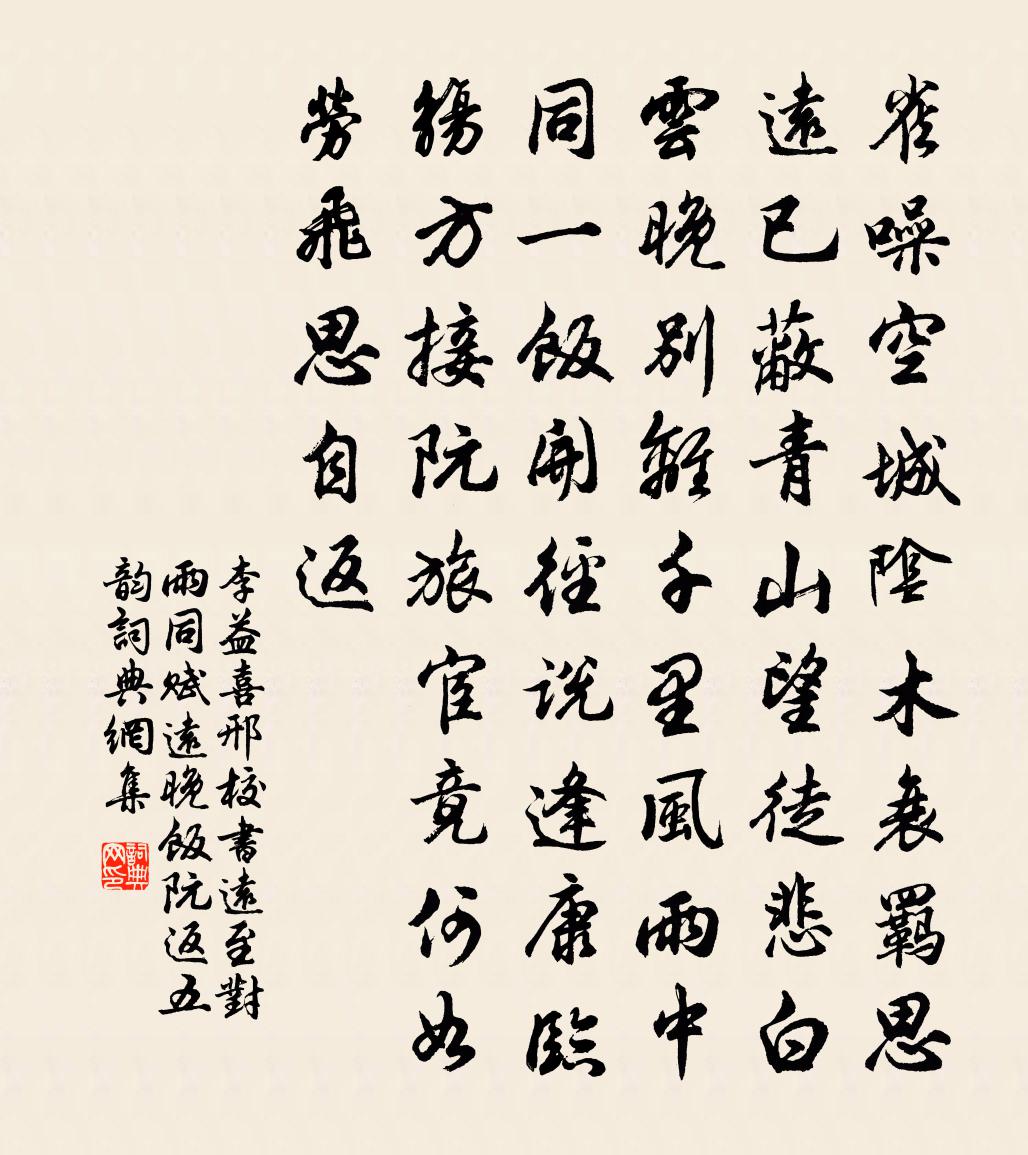 雀噪空城陰木衰羈思
遠已蔽青山望徒悲白
雲晚別離千里風雨中
同一飯開徑說逢康臨
觴方接阮旅宦竟何如
勞飛思自返
李益喜邢校書遠至對
雨同賦遠晚飯阮返五
韵詞典網集
詞典
网印